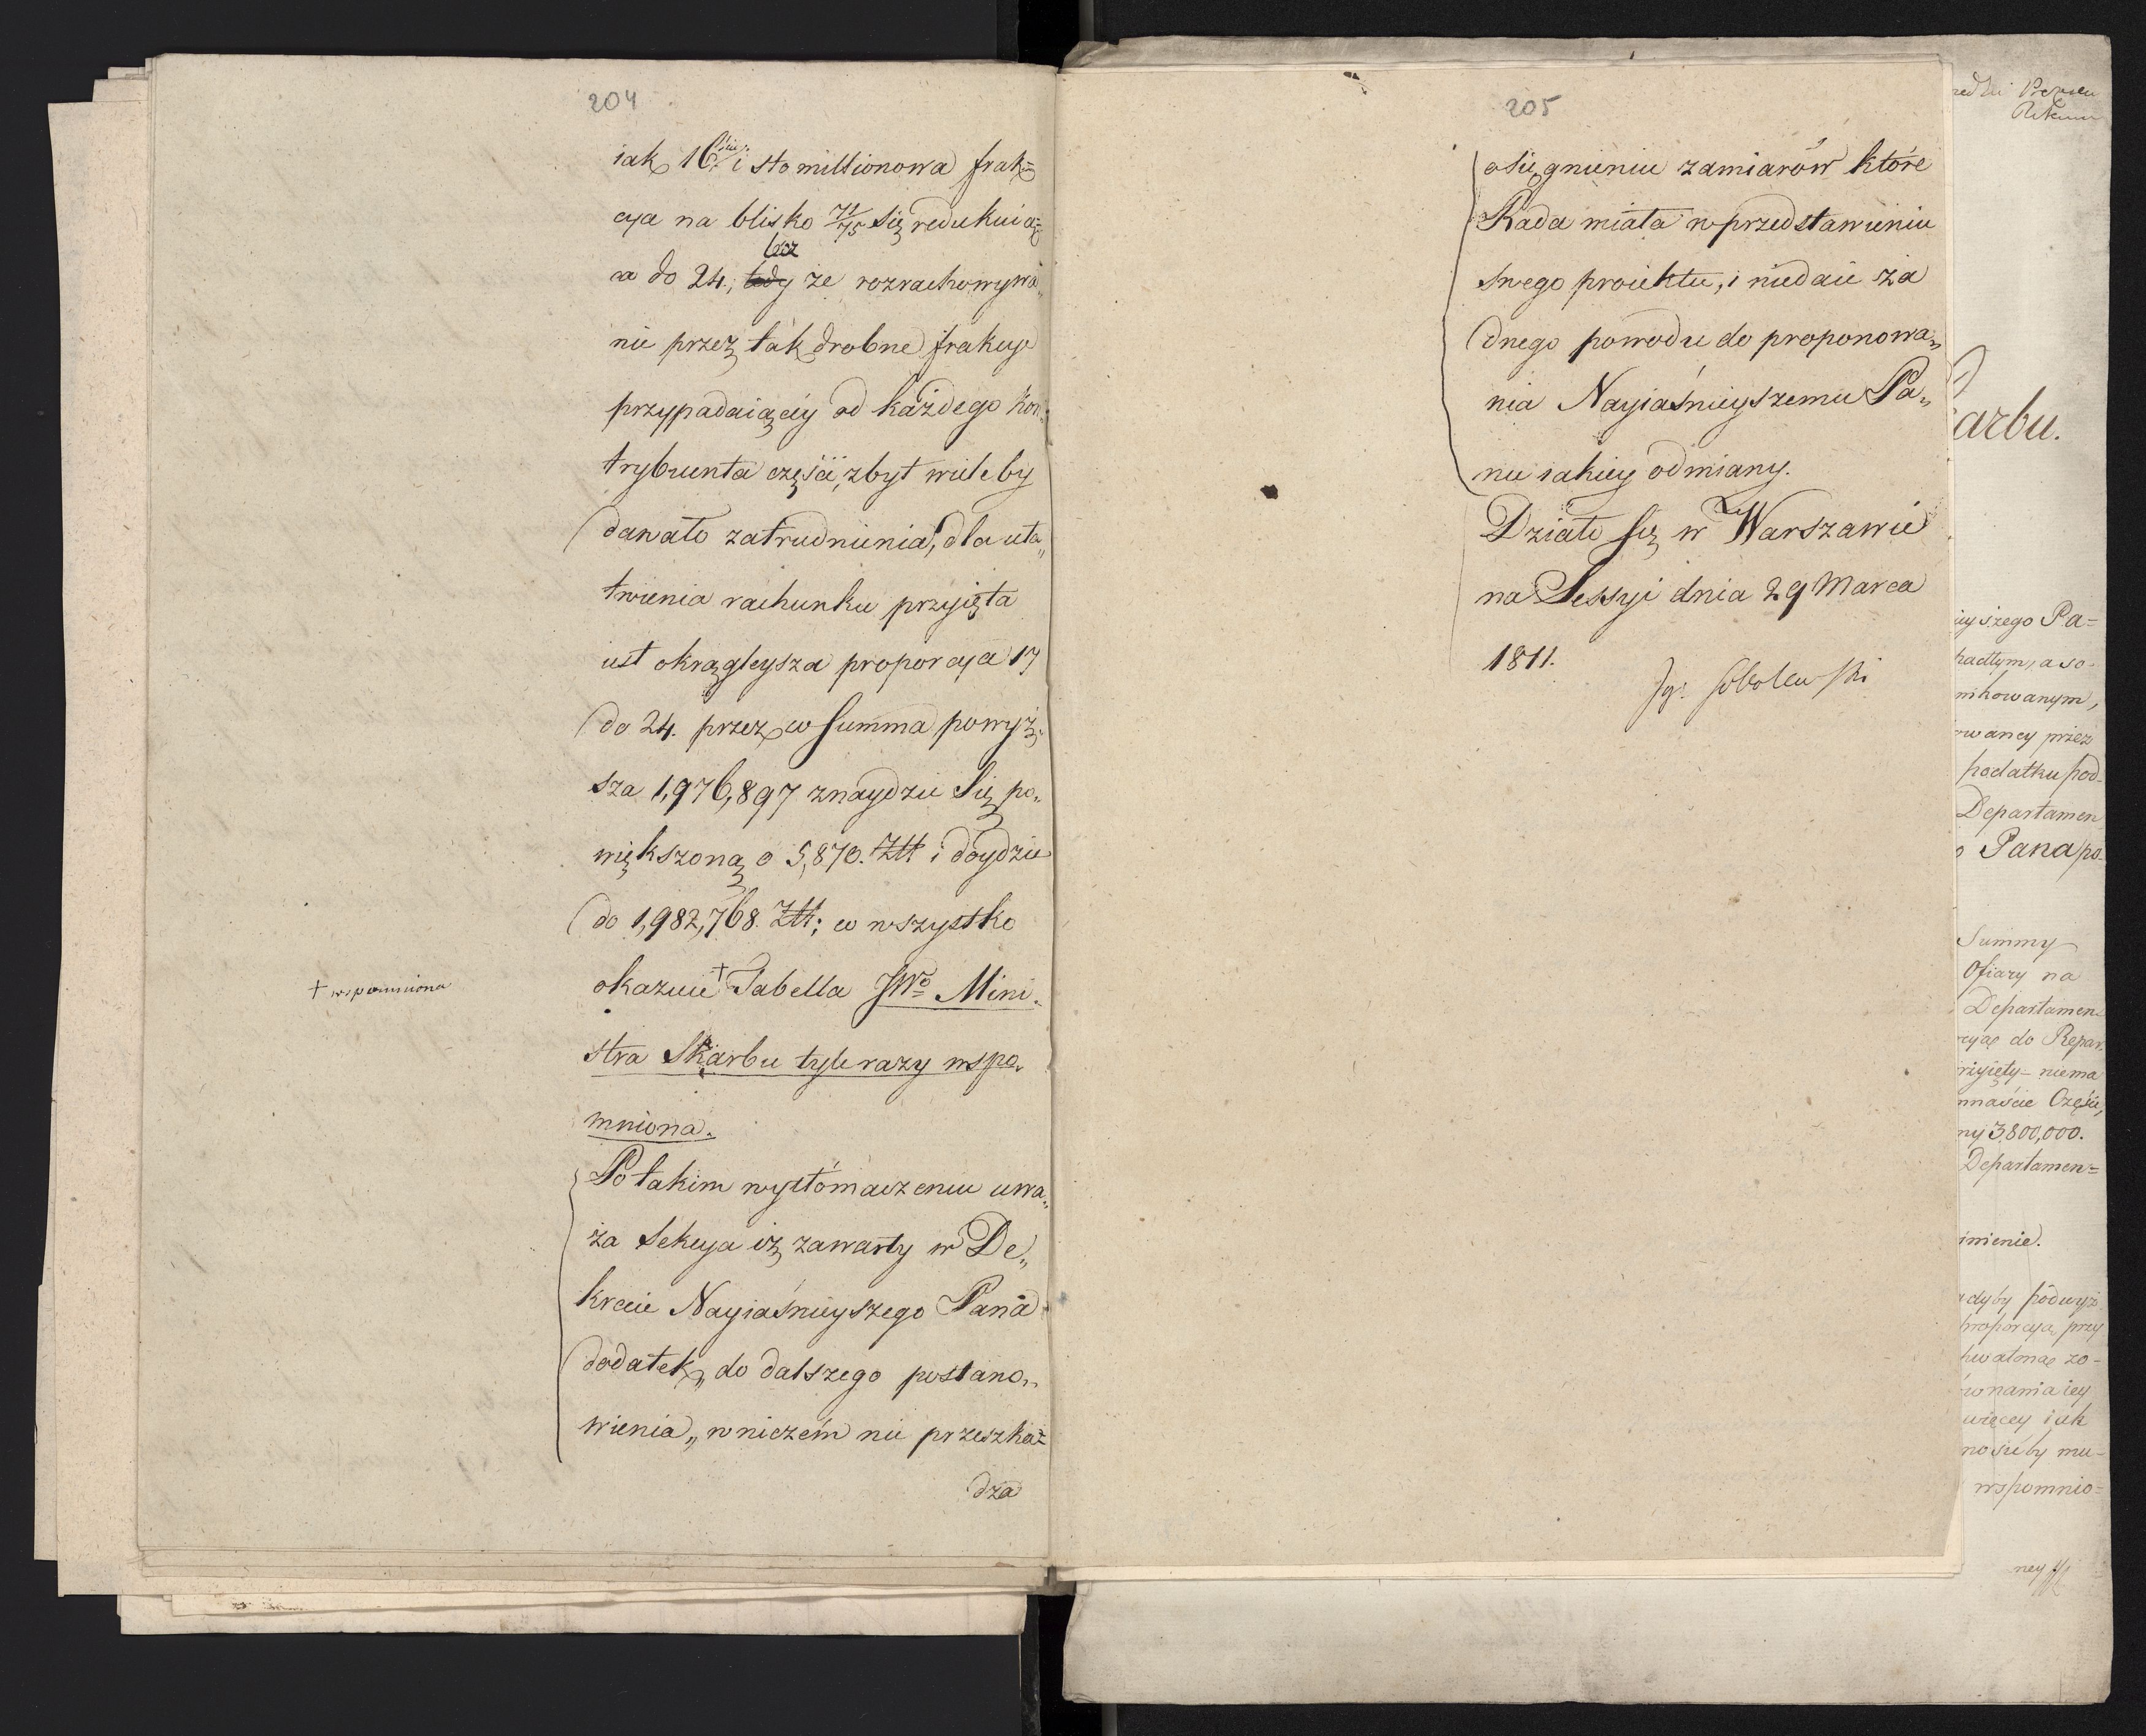 204
iak 16. i sto millionowa frak=
cya na blisko 71/75 się redukuią=
ca do 24; tedy lecz że rozrachowywa„
nie przez tak drobne frakcye
przypadaiącéy od każdego kon„
trybuenta części, zbyt wieleby
dawało zatrudnienia, dla uła„
twienia rachunku przyięta
iest okrągleysza proporcya 17
do 24. przez co summa powyż„
sza 1,976,897 znaydzie się po„
większoną o 5,870. Złł i doydzie
do 1,982,768. Złł; co wszystko
okazuie + Tabella JWo Mini„
+ wspomniona
stra Skarbu tyle razy wspo„
mniona.
Po takim wytłómaczeniu uwa„
ża Sekcya iż zawarty w De„
krecie Nayiaśnieyszego Pana
dodatek „do dalszego postano„
wienia„ w niczém nie przeszka=
dza
205
osiągnieniu zamiarów które
Rada miała w przedstawieniu
swego proiektu, i niedaie ża
dnego powodu do proponowa„
nia Nayiaśnieyszemu Pa„
nu iakiey odmiany.
Działo się w Warszawie
na Sessyi dnia 29 Marca
1811.
Jg. Sobolewski
arbu.
uyszego Pa=
padłym, a so-
nikowanym,
waney przez
podatku pod-
Departamen
Pana po-
Summy
Ofiary na
Departamen-
cyąc do Repar
rzyięty - niema
nnaście Części,
ny 3,800,000.
Departamen=
inienie.
gdyby podwyż
proporcyą przy
hwaloną zo-
wnania iey
więcey iak
nosiéby mu-
wspomnio=
ney